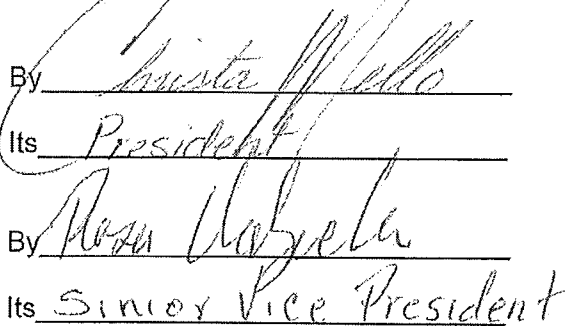 By Christa Mello
Its President
By Rosa
Its Sinior Vice President